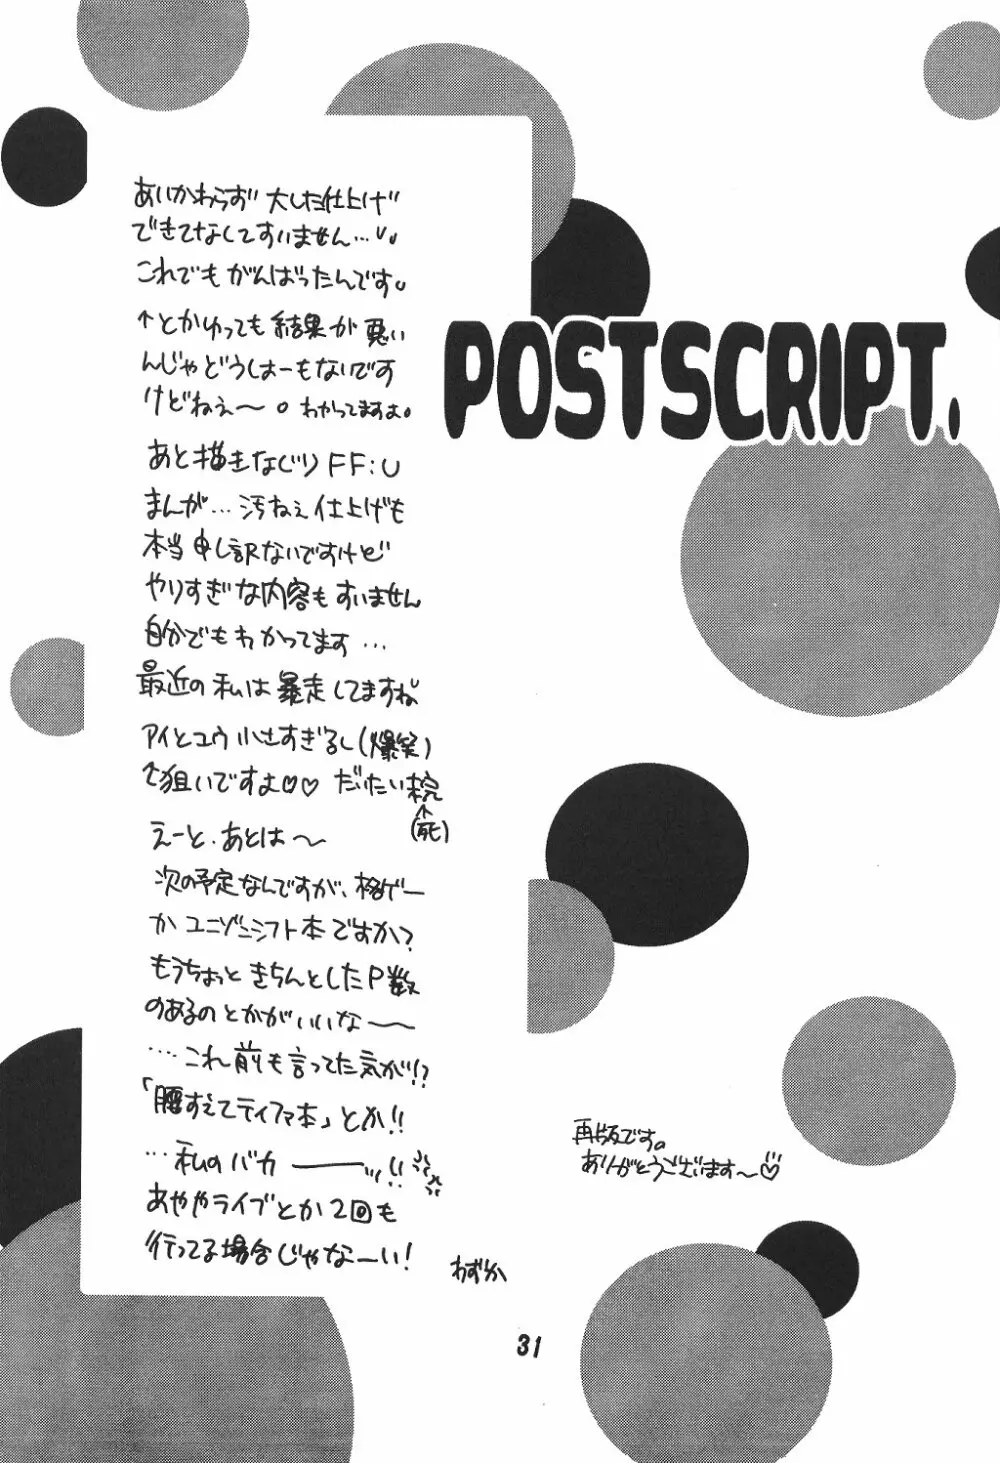 POSTSCRIPT.
あいかわらず大した仕上げ
できてなしてすいません…。
これでもがんばったんです。
↑とかゆっても結果が悪い
んじゃどうしよーもないです
けどねぇ〜。わかってますよ。
あと描きなぐりFF:U
まんが…汚ねぇ仕上げも
本当申し訳ないですけど
やりすぎな内容もすいません
自分でもわかってます…
最近の私は暴走してますね。
アイとユウ小さすぎるし(爆笑)
↑狙いですよ♡♡ だいたい
(死)
えーと、あとは〜
次の予定なんですが、格ゲー
かユニゾンシフト本ですか?
もうちょっときちんとしたP数
のあるのとかがいいな――
‥‥これ前も言ってた気が!?
「腰すえてティファ本」とか!!
…私のバカ――ッ!!
あややライブとか2回も
行ってる場合じゃなーい!
わずか
再版です。
ありがとうございます〜♡
31